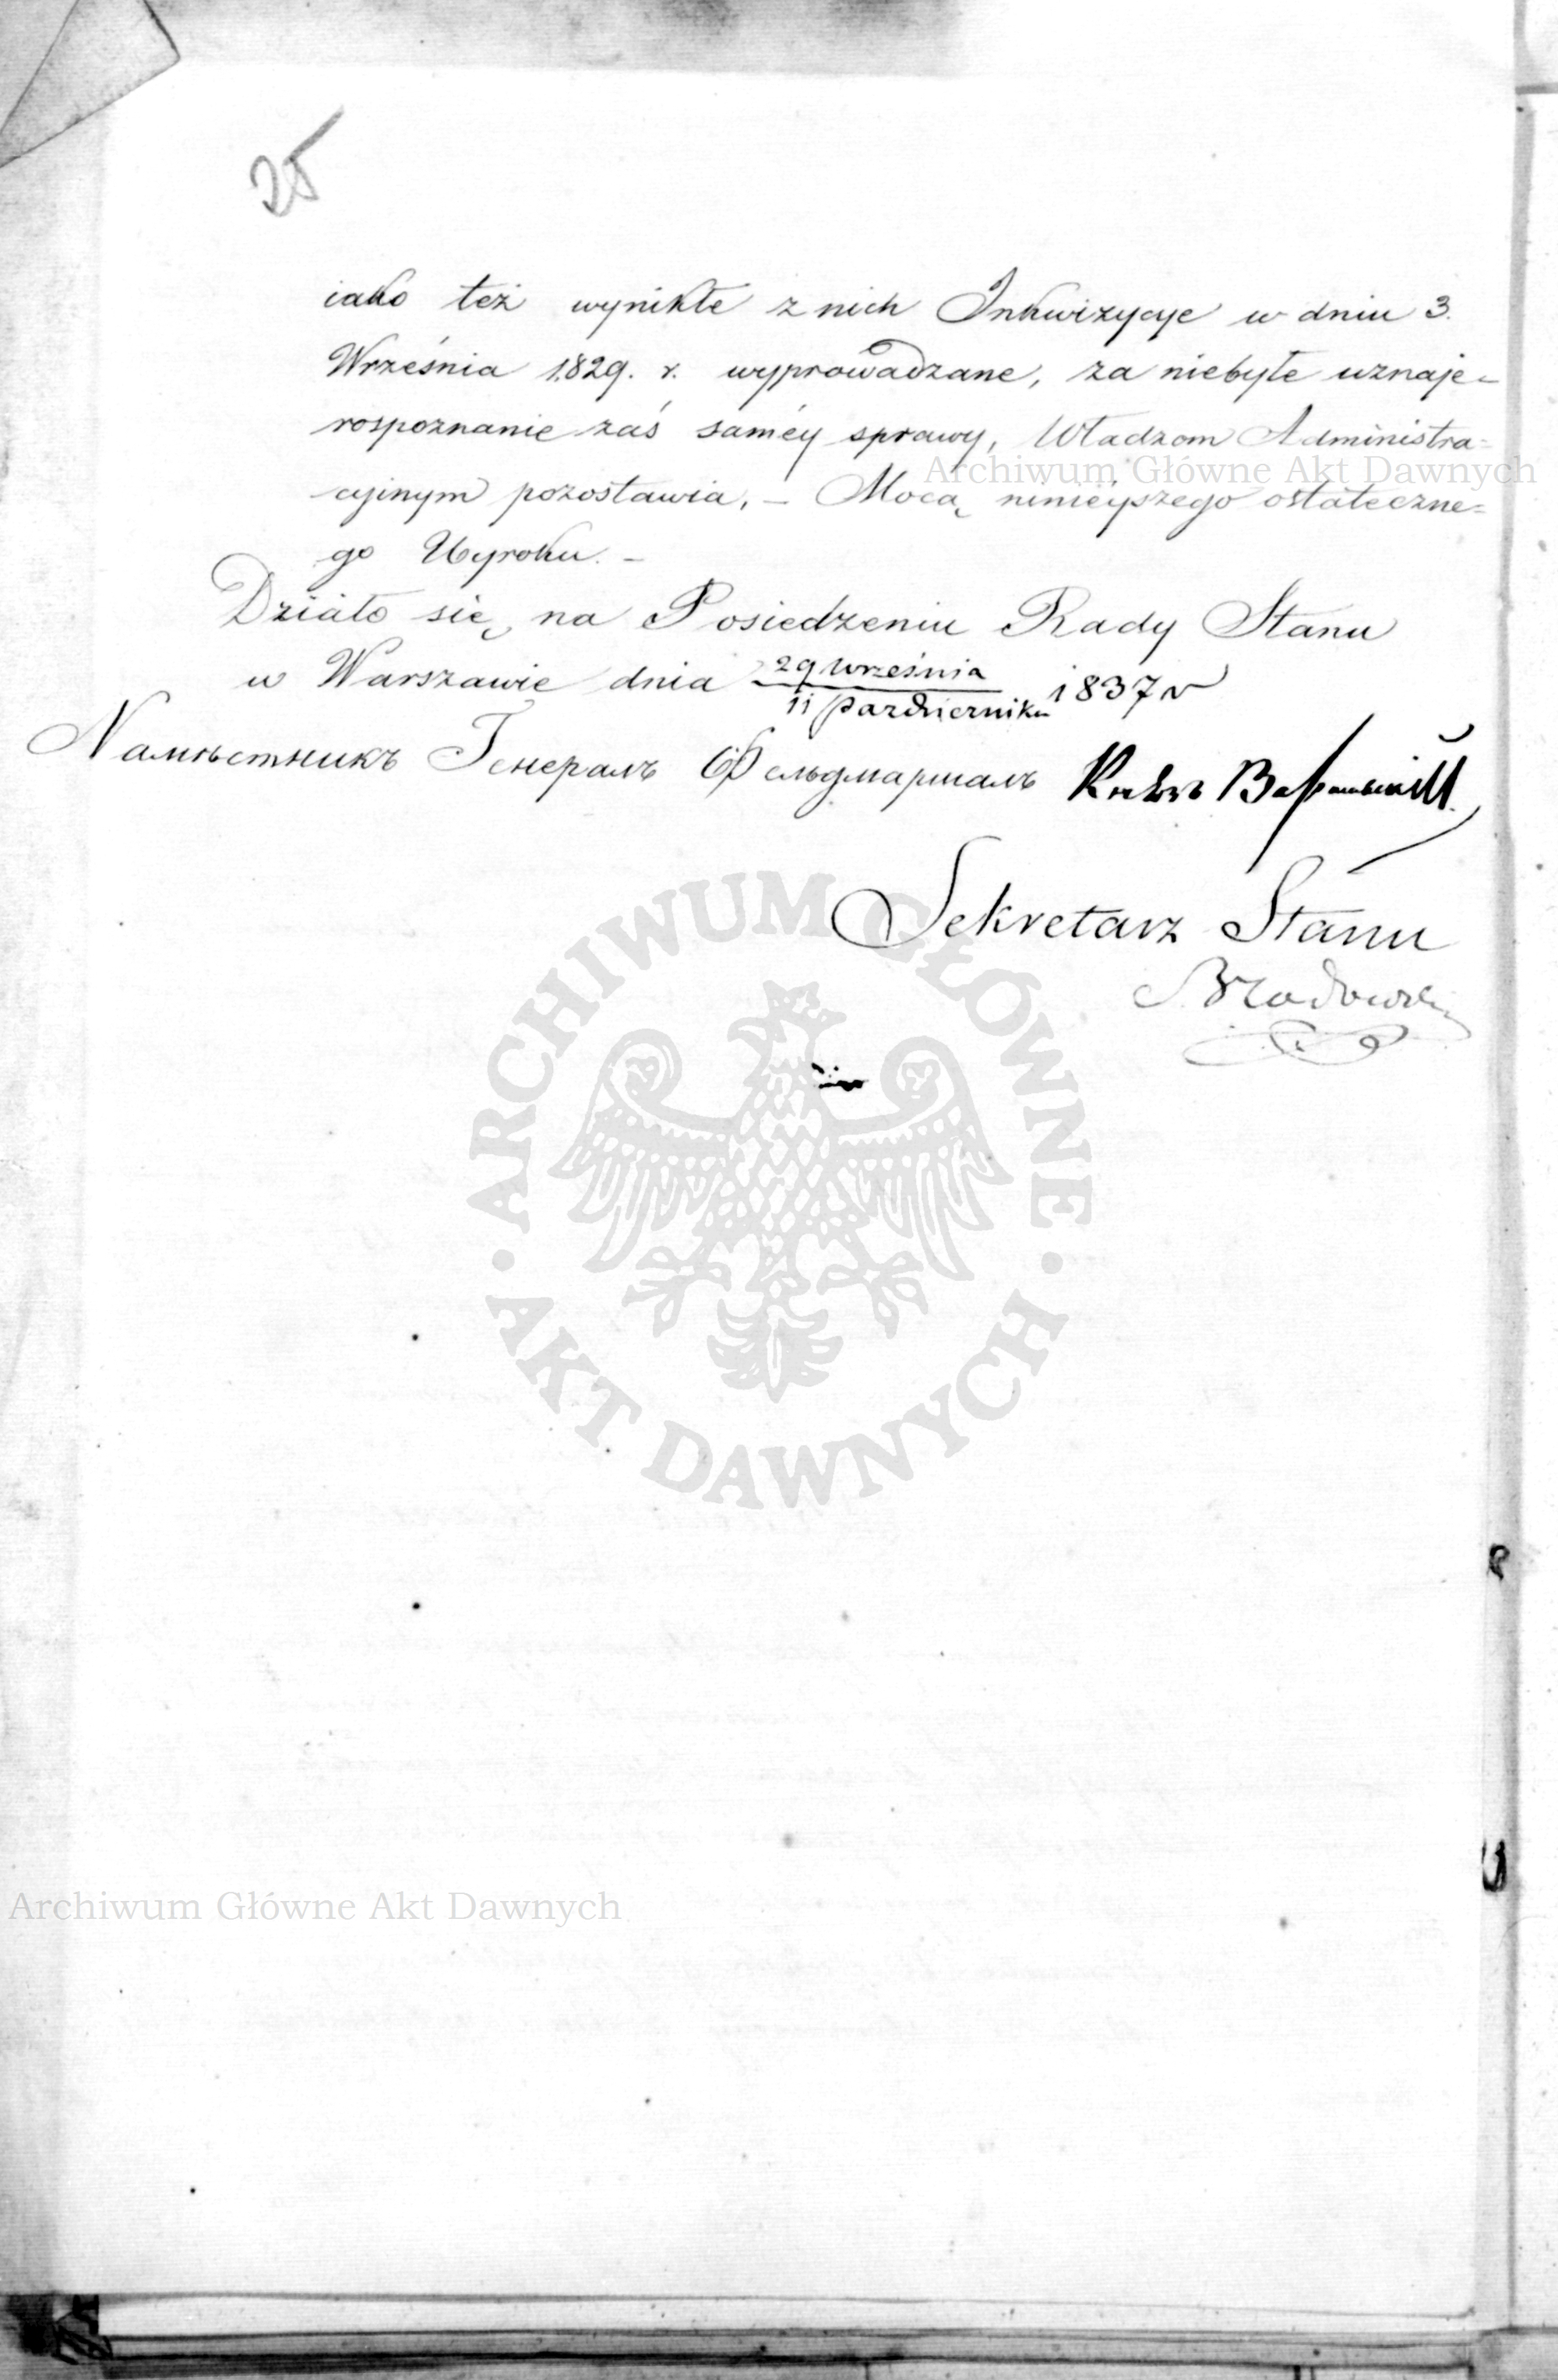 25
iako też wynikłe z nich Inkwizycye w dniu 3.
Września 1829. r. wyprowadzane, za niebyłe uznaje-
rospoznanie zaś saméy sprawy, Władzom Administra=
Archiwum Główne Akt Dawnych
cyinym pozostawia, – Mocą ninieyszego ostateczne=
go Wyroku. –
Działo się, na Posiedzeniu Rady Stanu
w Warszawie dnia 29 Września 1837 r
11 Października
Намѣстникъ Генералъ Фельдмаршалъ Князь Варшавскій
Sekretarz Stanu
ARCHIWUM GŁÓWNE
· AKT DAWNYCH ·
Archiwum Główne Akt Dawnych